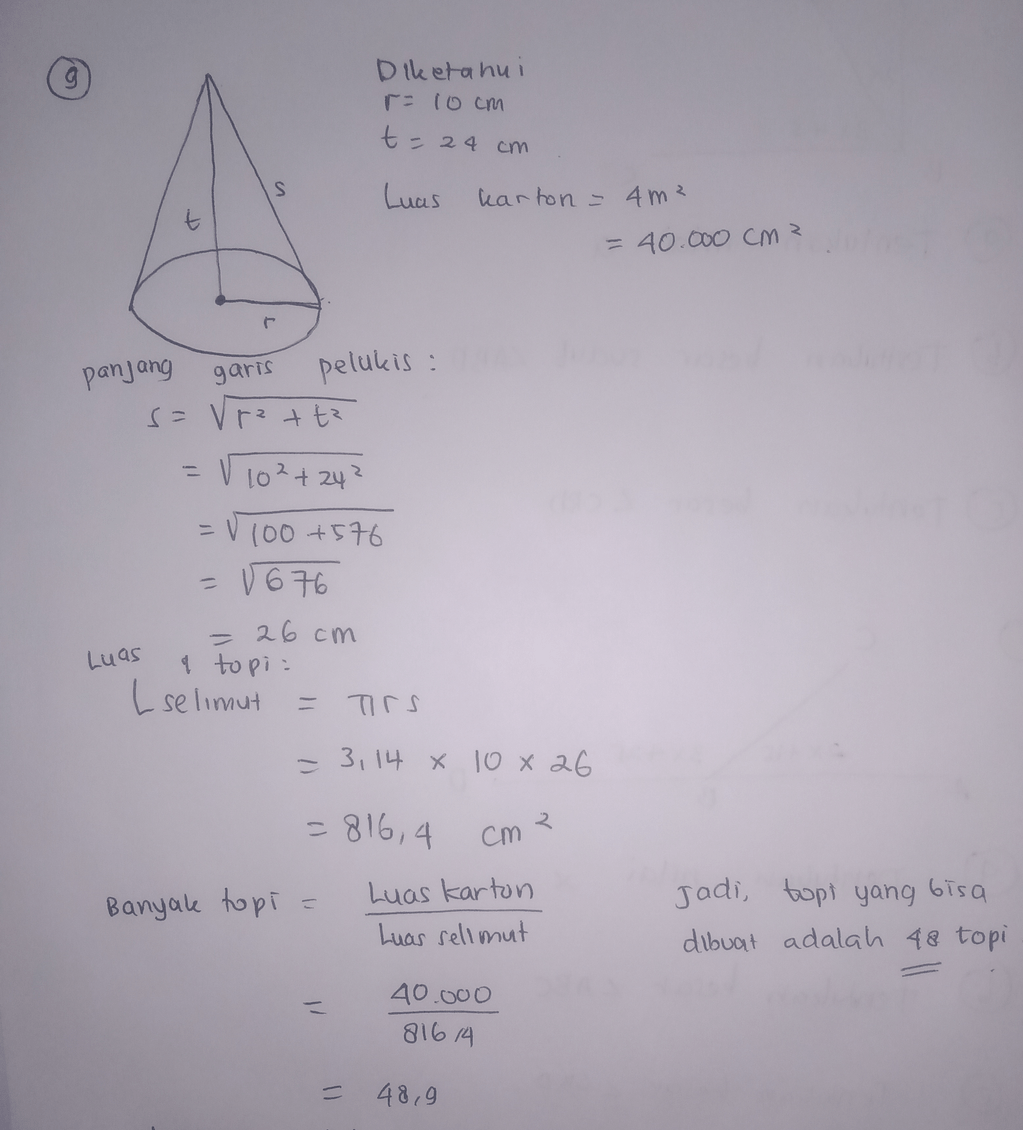 9
Diketahui
r = 10 cm
t = 24 cm
Luas karton = 4 m²
= 40.000 cm²
s
t
r
panjang garis pelukis :
s = √r² + t²
= √10² + 24²
= √100 + 576
= √676
= 26 cm
Luas 1 topi :
L selimut = πrs
= 3,14 x 10 x 26
= 816,4 cm²
Banyak topi = Luas karton / Luas selimut
= 40.000 / 816,4
= 48,9
Jadi, topi yang bisa
dibuat adalah 48 topi.